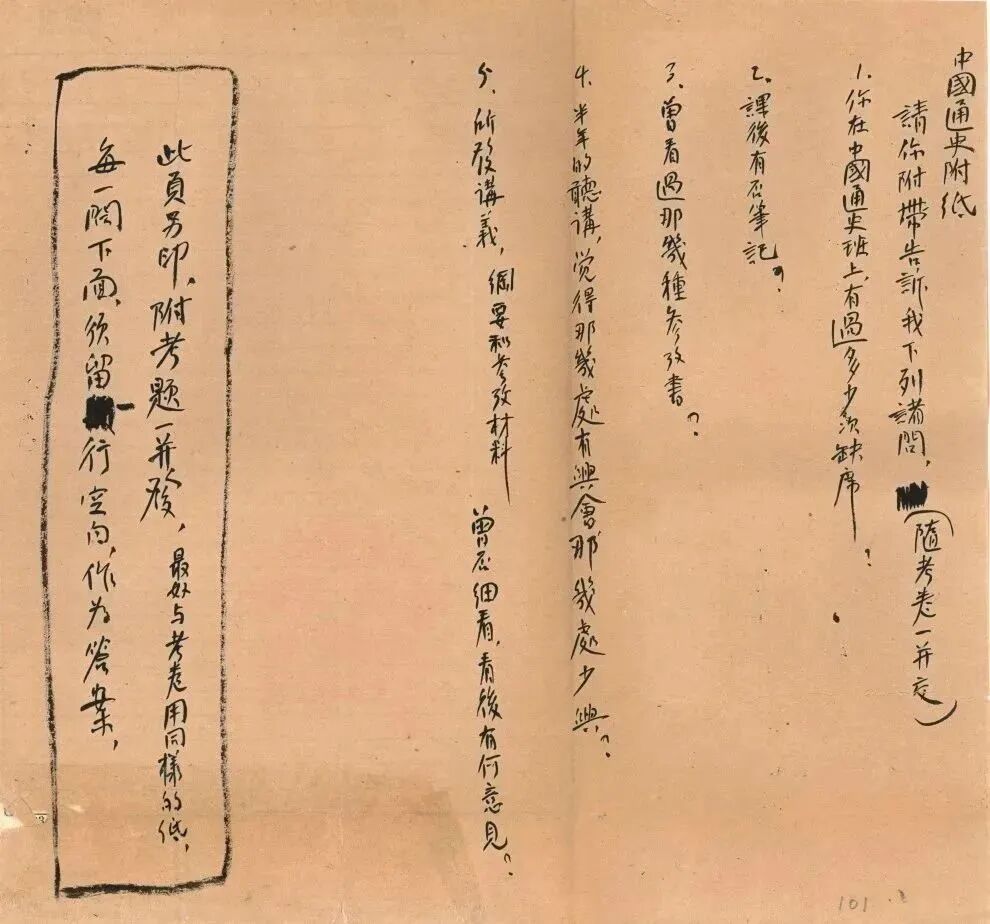 中國通史附纸
請你附帶告訴我下列諸問，（隨考卷一并交）
1、你在中國通史班上，有過多少次缺席？
2、課後有否筆記？
3、曾看過那幾種參攷書？
4、半年的聽講，觉得那幾處有興會那幾處少興？
5、所發講義，綱要和參攷材料 曾否細看，看後有何意見？
此頁另印，附考題一并發，最好与考卷用同樣的纸，
每一問下面，須留一行空白，作为答案，
101